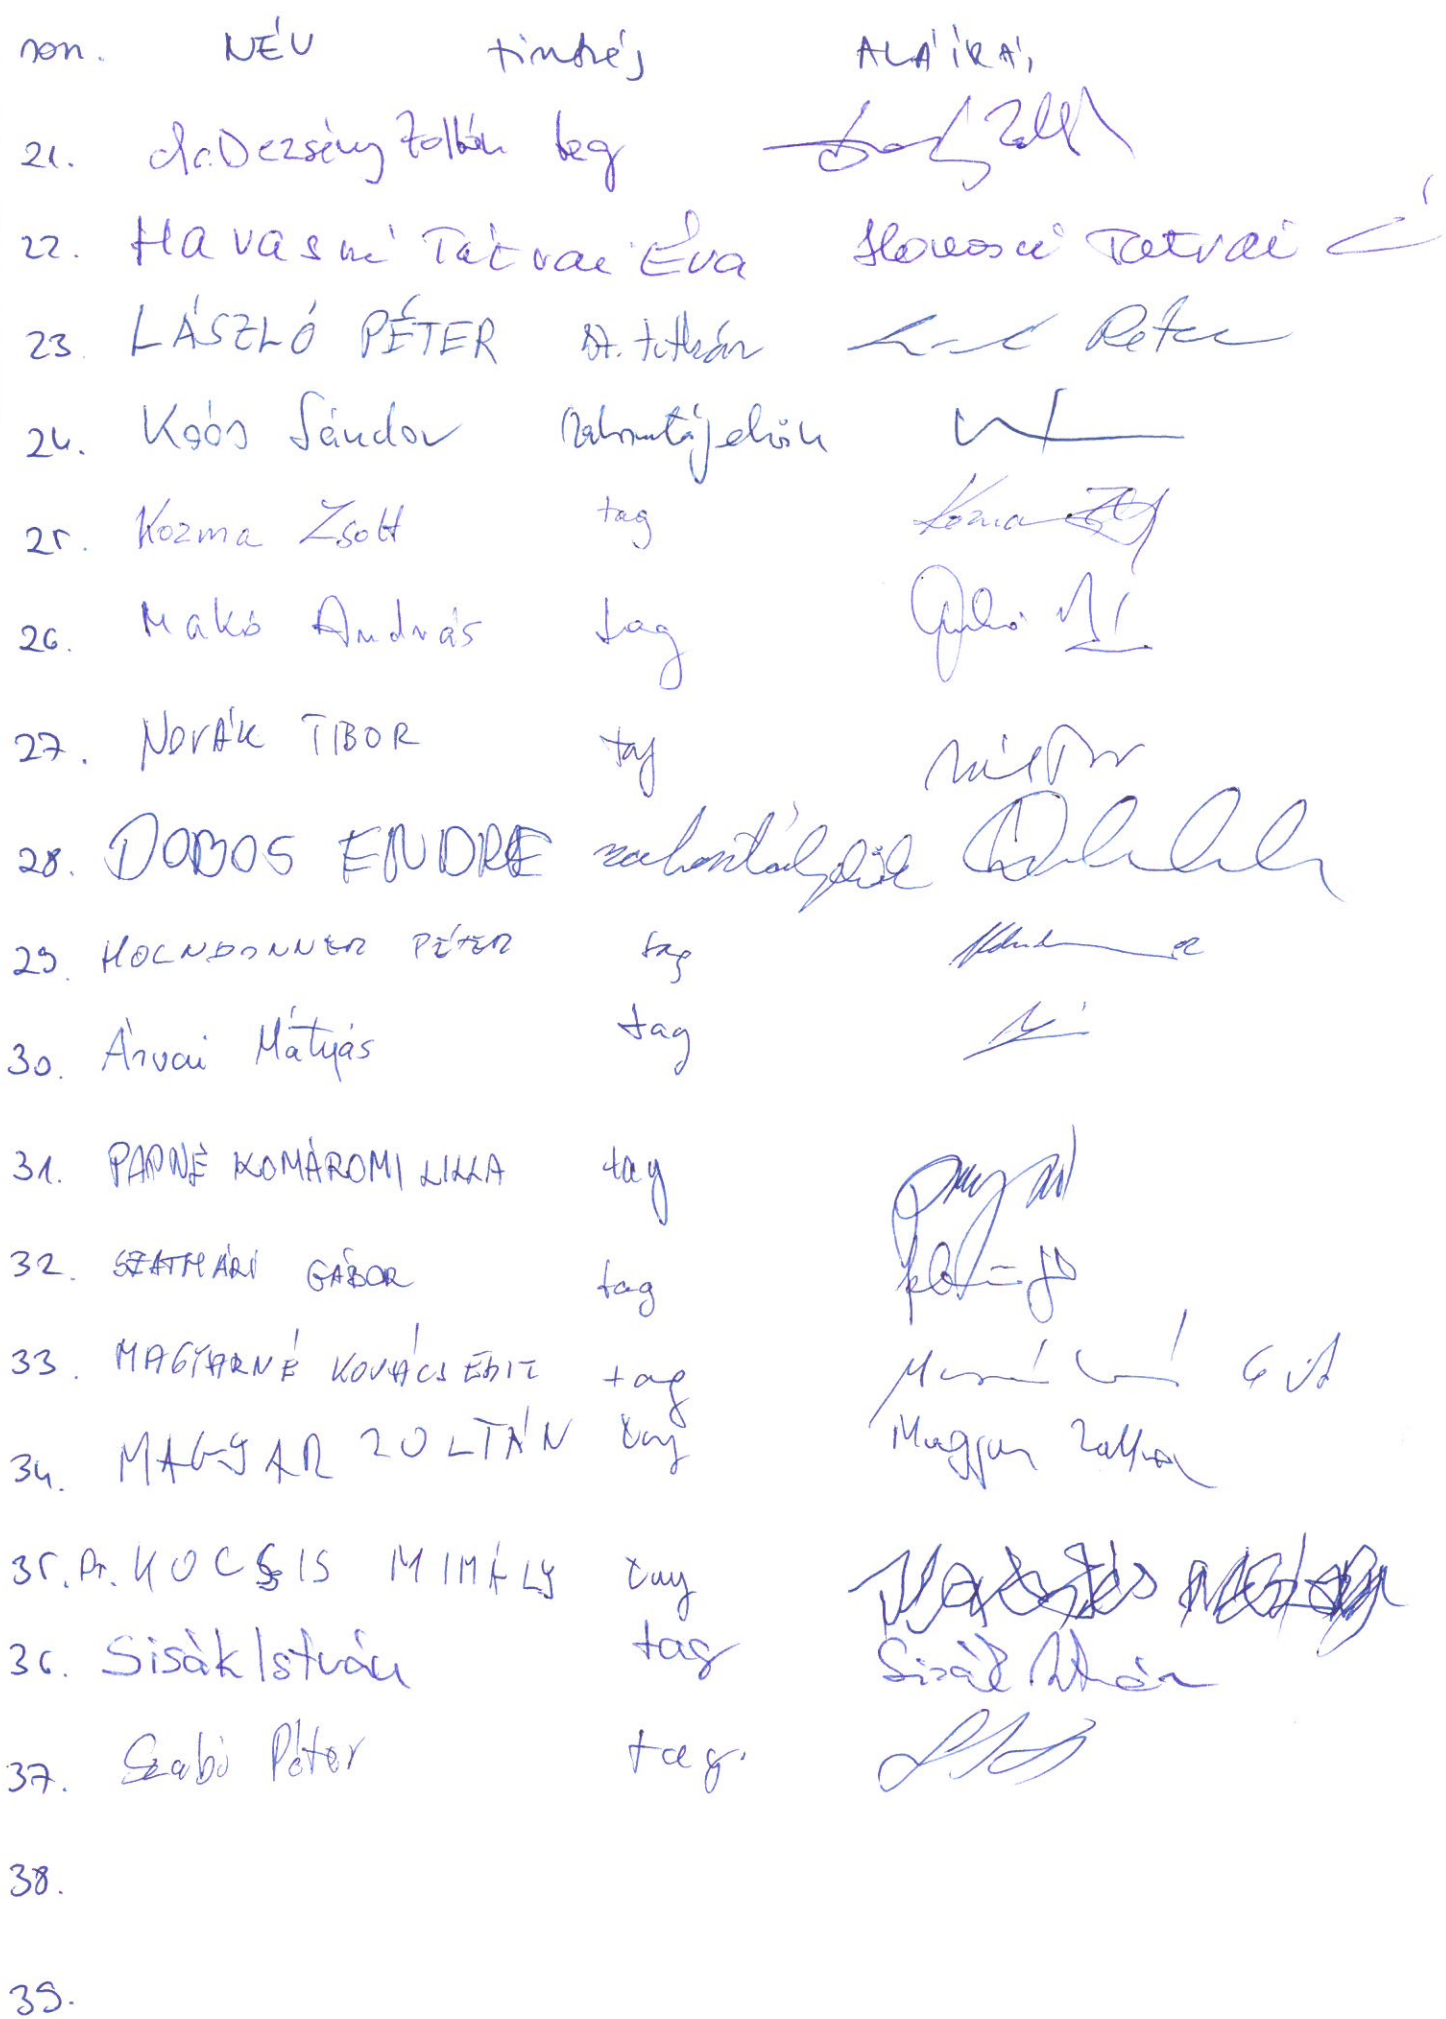 NÉV tisztség ALÁÍRÁS
21. dr. Dezsény Zoltán tag
22. Havasné Tátrai Éva Havasné Tátrai É
23. LÁSZLÓ PÉTER titkár Péter
24. Koós Sándor szakosztályelnök
25. Kozma Zsolt tag Kozma
26. Makó András tag Makó
27. NOVÁK TIBOR tag
28. DOBOS ENDRE szakosztályelnök
29. HOLNDONNER PÉTER tag
30. Árvai Mátyás tag
31. PAPNÉ KOMÁROMI LILLA tag
32. SZATMÁRI GÁBOR tag
33. MAGYARNÉ KOVÁCS EDIT tag
34. MAGYAR ZOLTÁN tag Magyar Zoltán
35. Dr. KOCSIS MIHÁLY tag
36. Sisák István tag Sisák István
37. Szabó Péter tag.
38.
39.